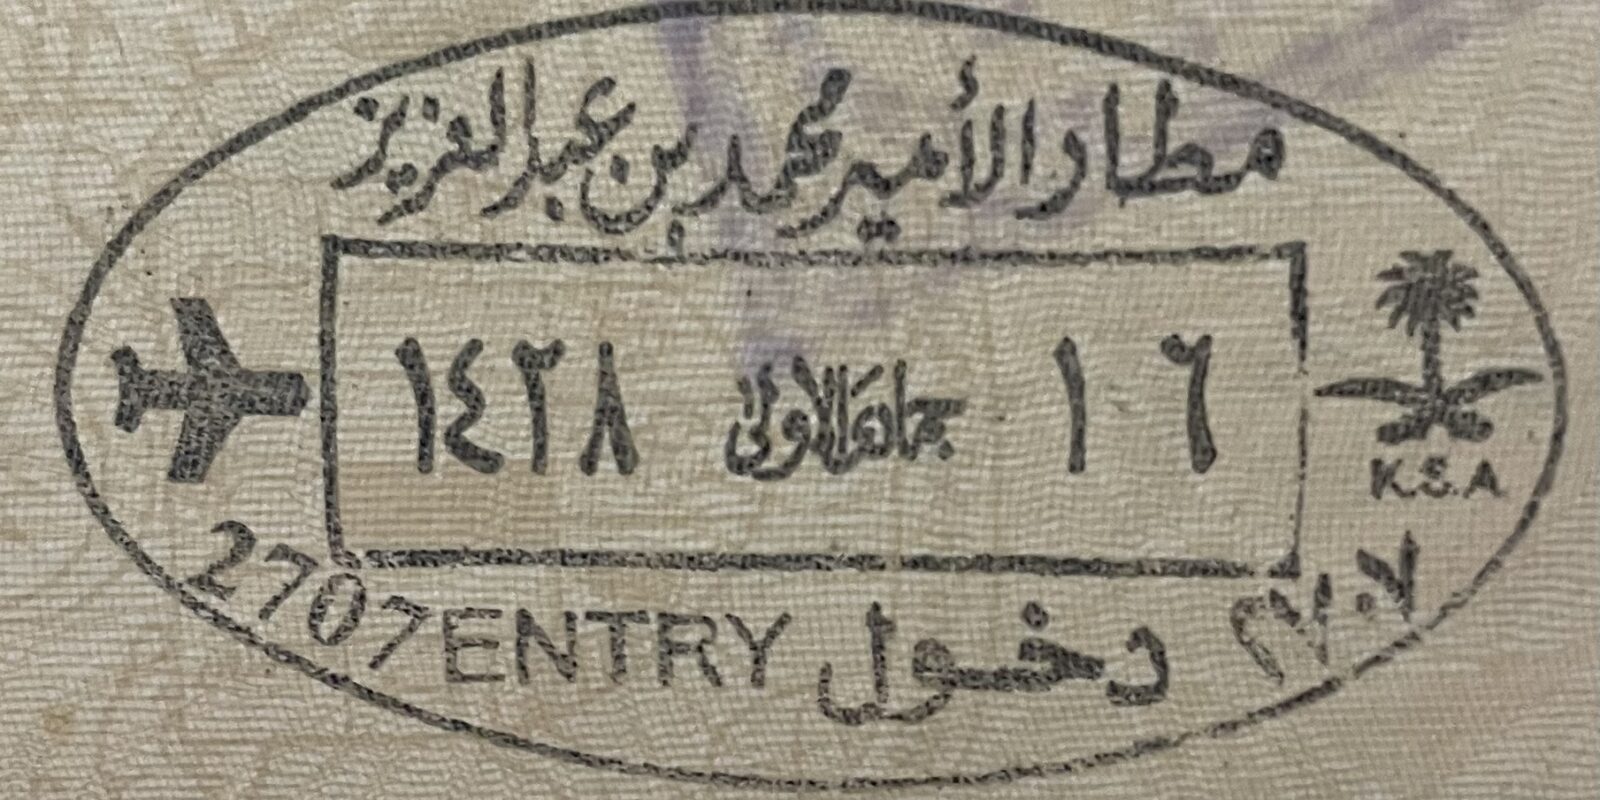 مطار الأمير محمد بن عبدالعزيز
١٦ جمادى الاولى ١٤٢٨
K.S.A
2707 ENTRY دخول ٢٧٠٧